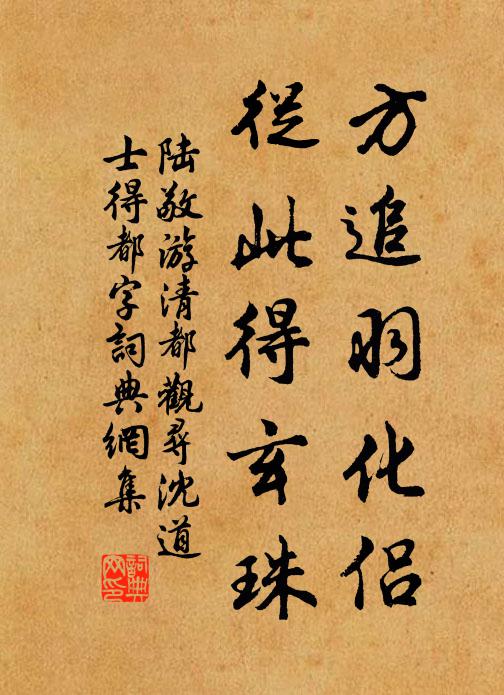 方追羽化侶
從此得玄珠
陆敬游清都觀尋沈道
士得都字詞典網集
詞典
网印